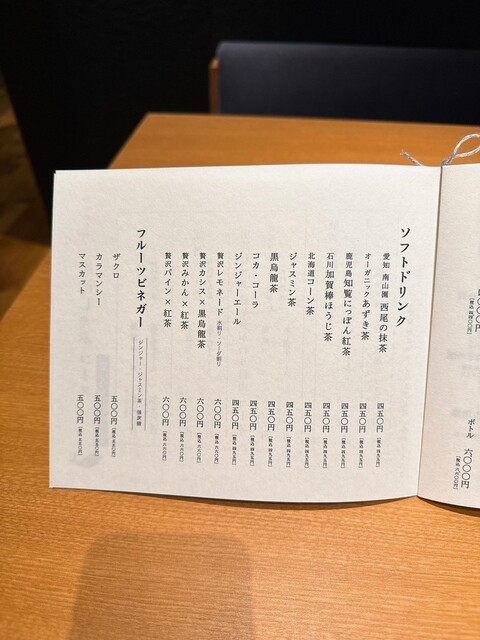 ボトル
六〇〇〇円
ソフトドリンク
愛知 南山園 西尾の抹茶 四五〇円(税込 四九五円)
オーガニックあずき茶 四五〇円(税込 四九五円)
鹿児島知覧にっぽん紅茶 四五〇円(税込 四九五円)
石川加賀棒ほうじ茶 四五〇円(税込 四九五円)
北海道コーン茶 四五〇円(税込 四九五円)
ジャスミン茶 四五〇円(税込 四九五円)
黒烏龍茶 四五〇円(税込 四九五円)
コカ・コーラ 四五〇円(税込 四九五円)
ジンジャーエール 四五〇円(税込 四九五円)
贅沢レモネード 水割り・ソーダ割り 六〇〇円(税込 六六〇円)
贅沢カシス×黒烏龍茶 六〇〇円(税込 六六〇円)
贅沢みかん×紅茶 六〇〇円(税込 六六〇円)
贅沢パイン×紅茶 六〇〇円(税込 六六〇円)
フルーツビネガー ジンジャー・ジャスミン茶
ザクロ 五〇〇円(税込 五五〇円)
カラマンシー 五〇〇円(税込 五五〇円)
マスカット 五〇〇円(税込 五五〇円)